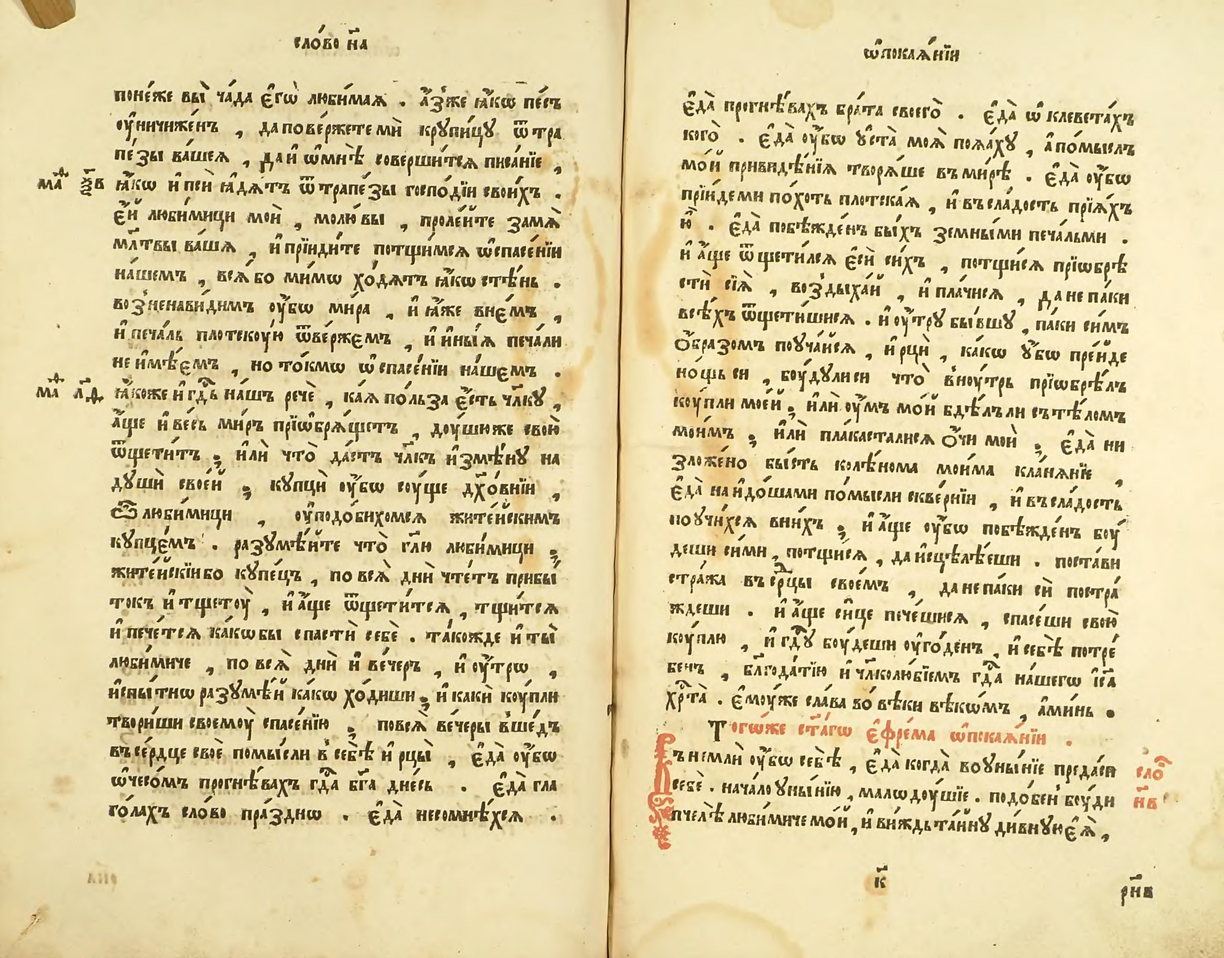 сло́во н҃а
поне́же вы̀ ча́да є҆гѡ̀ люби́мая . а҆́зже ꙗ҆́кѡ пе́съ
ᲂу҆ничиже́нъ , да пове́ржете мѝ крꙋпи́цꙋ ѿ тра
пе́зы ва́шеѧ , да и҆ ѡ҆мнѣ̀ соверши́тсѧ писа́нїе ,
маⷴ҇ ѯ҃в ꙗ҆́кѡ и҆ псѝ ꙗ҆дѧ́тъ ѿ трапе́зы госпо́дїи свои́хъ .
є҆́й люби́мици моѝ , молю́ вы̀ , проле́йте замѧ̀
мл҃твы ва́шѧ , и҆ прїиди́те потщи́мсѧ ѡ҆спасе́нїи
на́шемъ , всѧ̀ бо ми́мѡ хо́дѧтъ ꙗ҆́кѡ стѣ́нь .
воз̾ненави́димъ ᲂу҆́бѡ ми́ра , и҆ ꙗ҆́же вне́мъ ,
и҆ печа́ль пло́тскᲂую ѿве́ржемъ , и҆ и҆ны́ѧ печа́ли
не и҆мѣ́емъ , но то́кмѡ ѡ҆ спасе́нїи на́шемъ .
маⷴ҇ л҃д ꙗ҆́коже и҆ гдⷭ҇ь на́шъ речѐ , ка́ѧ по́льза є҆́сть чл҃кꙋ ,
а҆́ще и҆ ве́сь ми́ръ прїѡбрѧ́щетъ , дᲂушюже свою̀
ѿщети́тъ ; и҆лѝ что̀ да́стъ чл҃къ и҆змѣ́нꙋ на
дꙋшѝ свое́й ; кꙋпцѝ ᲂу҆́бѡ сꙋще дх҃о́внїи ,
ѽ люби́мици , ᲂу҆подо́бихомсѧ жите́йскимъ
кꙋпце́мъ . разꙋмѣ́йте что̀ гл҃ю люби́мици ;
жите́йскїи бо кꙋпе́цъ , по всѧ̀ дни̑ чте́тъ прибы́
токъ и҆ тщетᲂу̀ , и҆ а҆́ще ѿщети́тсѧ , тщи́тсѧ
и҆ пече́тсѧ ка́кѡбы спастѝ себѐ . та́кожде и҆ ты̀
люби́миче , по всѧ̀ дни̑ и҆ ве́черъ , и҆ ᲂу҆́трѡ ,
и҆спы́тнѡ разꙋмѣ́й ка́кѡ хо́диши ; и҆ каки̑ кᲂу́пли
твори́ши своемᲂу̀ спасе́нїю ; повсѧ̀ ве́черы вше́дъ
въ се́рдце своѐ помы́сли в̾ себѣ̀ и҆ рцы̀ , є҆да̀ ᲂу҆́бѡ
ѡ҆чесо́мъ прогнѣ́вахъ гдⷭ҇а бг҃а дне́сь . є҆да̀ гла
го́лахъ сло́во пра́зднѡ . є҆да̀ несомнѣ́хсѧ .
ѡ҆покаѧ́нїи
є҆да̀ прогнѣ́вахъ бра́та своегѡ̀ . є҆да̀ ѡ҆клевета́хъ
кого̀ . є҆да̀ ᲂу҆́бѡ ᲂу҆ста̀ моѧ̀ поѧ́хꙋ , а҆ по́мыслъ
мо́й привидѣ́нїѧ творѧ́ше въ ми́рѣ . є҆да̀ ᲂу҆́бѡ
прїи́де ми по́хоть пло́тскаѧ , и҆ въ сла́дость прїѧ́хъ
ю҆̀ . є҆да̀ побѣжде́нъ бы́хъ зе́мными печа́льми .
и҆ а҆́ще ѿщети́лсѧ є҆сѝ си́хъ , потщи́сѧ прїѡбрѣ
стѝ сїѧ̀ , воздыха́й , и҆ пла́чисѧ , да не па́ки
всѣ́хъ ѿщети́шисѧ . и҆ ᲂу҆́трꙋ бы́вшꙋ , па́ки си́мъ
ѻ҆́бразомъ поꙋча́йсѧ , и҆ рцѝ , ка́кѡ ᲂу҆́бѡ пре́йде
но́щь сѝ , бᲂу́дꙋ ли сѝ что̀ внᲂу́трь прїѡбрѣ́лъ
кᲂу́пли мое́й ; и҆лѝ ᲂу҆́мъ мо́й бдѣ́лъ ли съ тѣ́ломъ
мои́мъ ; и҆лѝ пла́кастали сѧ ѻ҆́чи моѝ ; є҆да̀ ни
зло́жено бы́сть колѣ́нома мои́ма кла́нѧнїе ,
є҆да̀ наидо́ша ми по́мысли скве́рнїи , и҆ въ сла́дость
поꙋчи́хсѧ вни́хъ ; и҆ а҆́ще ᲂу҆́бѡ побѣжде́нъ бᲂу́
деши си́ми , потщи́сѧ , да и҆сцѣлѣ́еши . поста́ви
стра́жа въ срⷣцы свое́мъ , да не па́ки сѝ постра́
ждеши . и҆ а҆́ще си́це пече́шисѧ , спасе́ши свою̀
кᲂу́плю , и҆ гдⷭ҇ꙋ бᲂу́деши ᲂу҆го́денъ , и҆ себѣ̀ потре́
бенъ , бл҃года́тїю и҆ чл҃колю́бїемъ гдⷭ҇а на́шегѡ і҆с҃а
хрⷭ҇та̀ . є҆мᲂу́же сла́ва во́ вѣки вѣкѡ́мъ , а҆ми́нь .
Тогѡ́же ст҃а́гѡ є҆фре́ма ѡ҆ покаѧ́нїи .
Въ немлѝ ᲂу҆́бѡ себѣ̀ , є҆да̀ когда̀ во ᲂу҆ны́нїе преда́си сло́
себѐ . нача́ло ᲂу҆ны́нїю , малѡдᲂу́шїе . подо́бен̾ бᲂу́ди н҃в
пчелѣ̀ люби́миче мо́й , и҆ ви́ждь та́йнꙋ ди́внꙋю є҆ѧ̀ ,
к҃
рн҃в